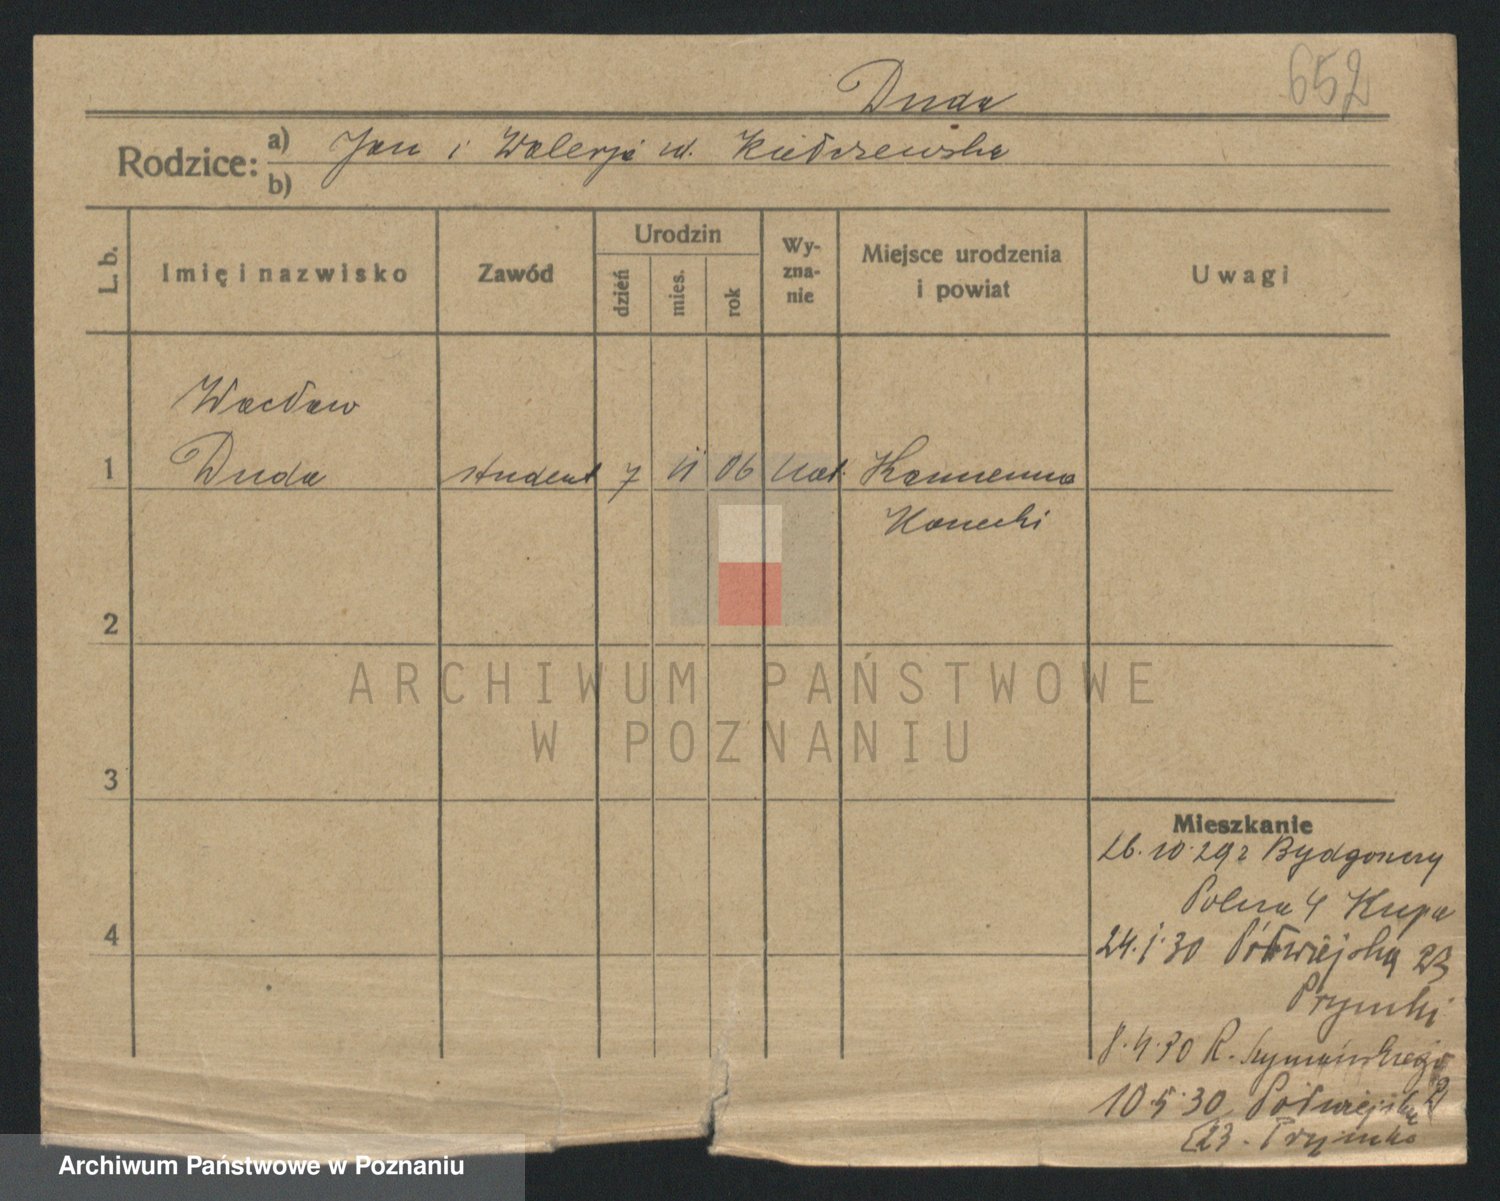 Duda
652
Rodzice: a) Jan i Walerja
b)
L. b.
Imię i nazwisko
Zawód
Urodzin
dzień
mies.
rok
Wy-
zna-
nie
Miejsce urodzenia
i powiat
Uwagi
Wacław
1 Duda student 7 11 06 kat.
2
3
4
Mieszkanie
26.10.29 z Bydgoszczy
Polna 4 Krupa
24.1.30 Półwiejska 23
8.4.30 R. Szymańskiego
10.5.30 Półwiejska
23.
ARCHIWUM PAŃSTWOWE
W POZNANIU
Archiwum Państwowe w Poznaniu